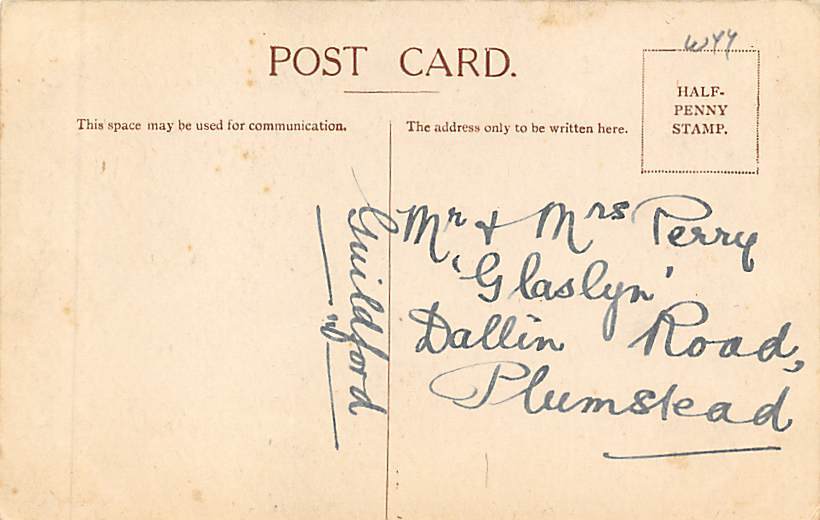 POST CARD.
This space may be used for communication.
The address only to be written here.
HALF-
PENNY
STAMP.
Mr & Mrs Perry
'Glaslyn'
Dallin Road,
Plumstead
Guildford